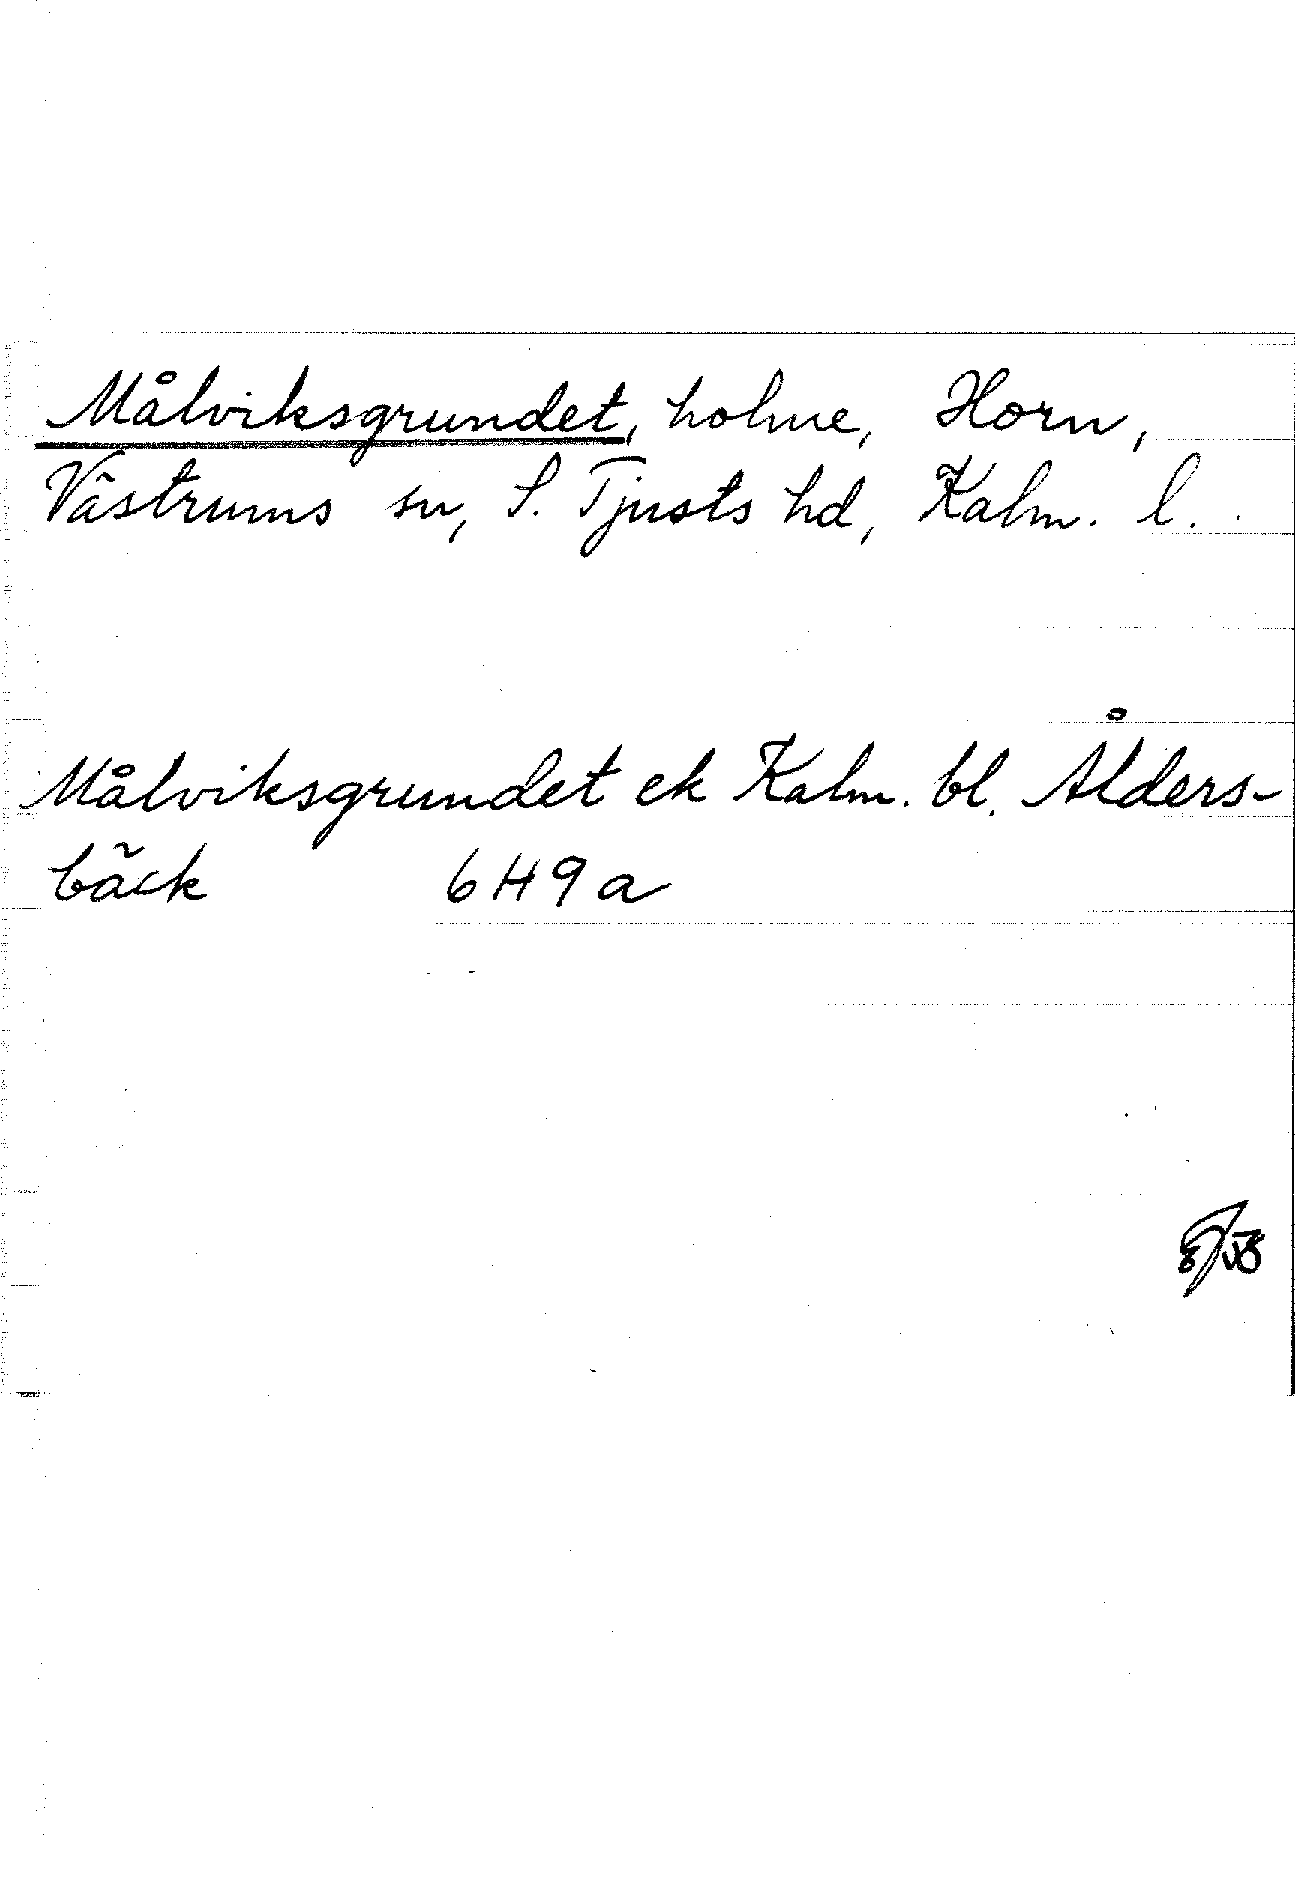 Målviksgrundet, holme, Horn,
Västrums sn, S. Tjusts hd, Kalm. l.
Målviksgrundet ek Kalm. bl. Ålders-
bäck 6H9a